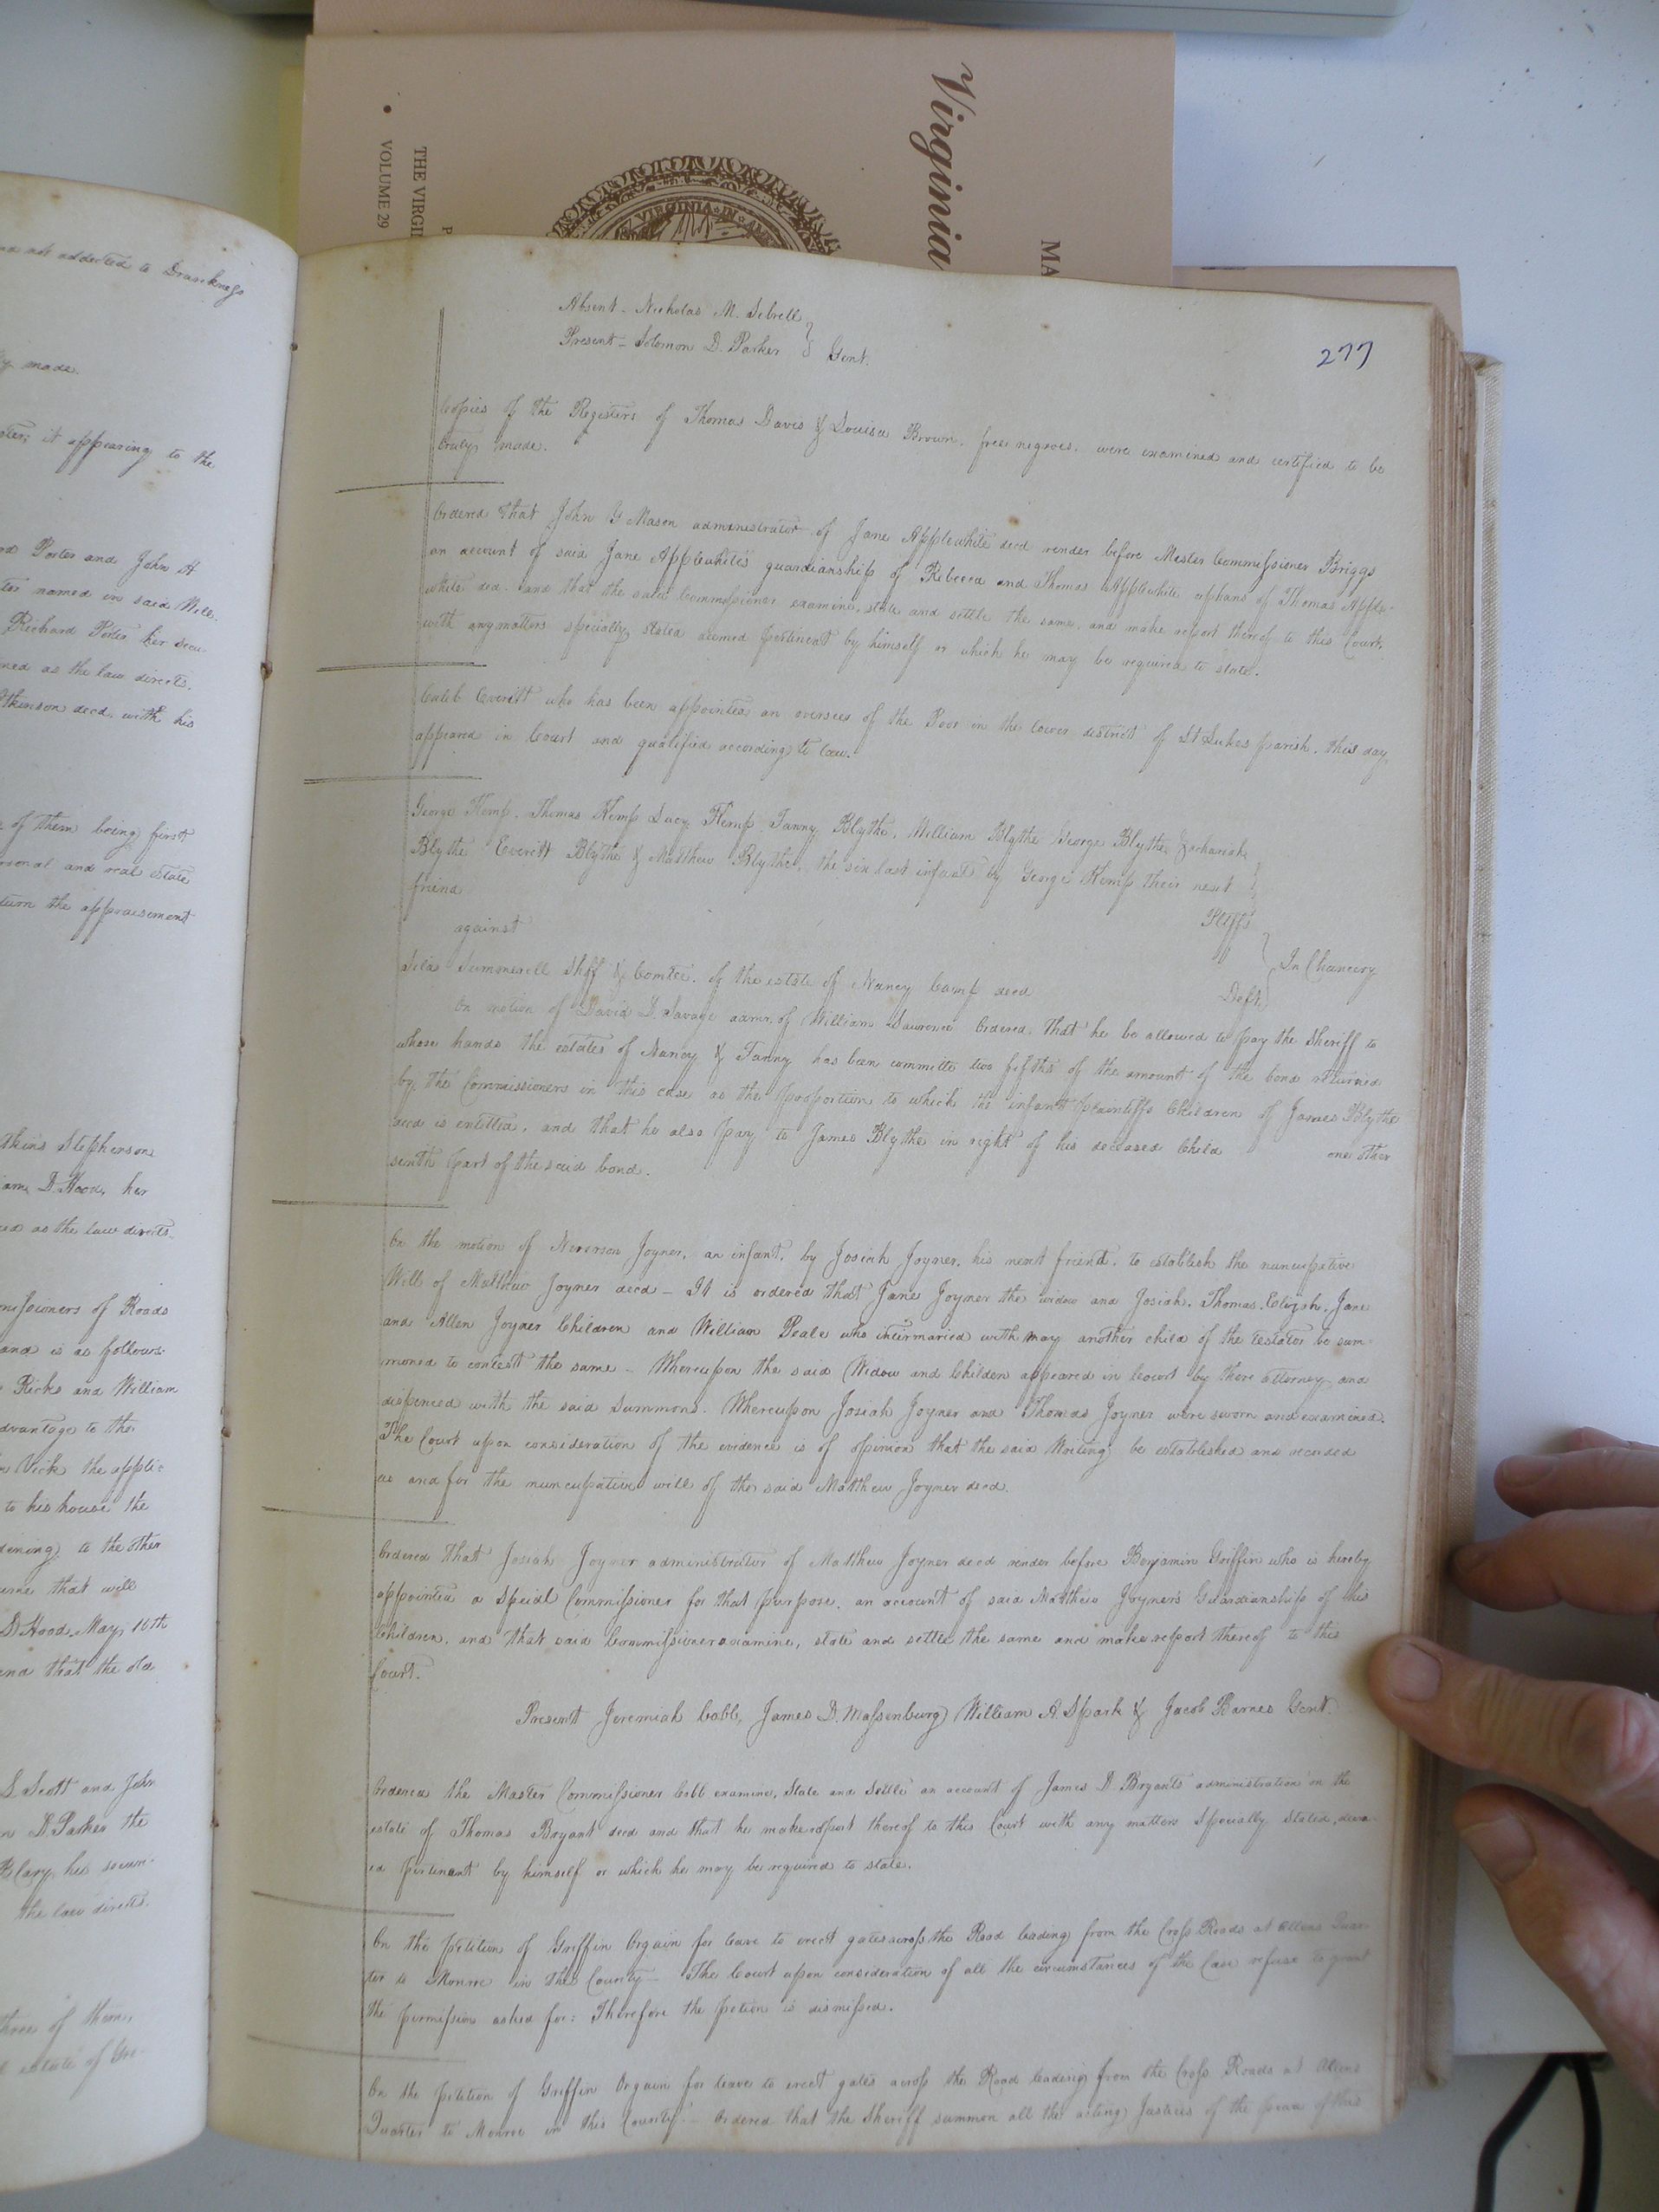 Virginia
MA
THE VIRGI
VOLUME 29
P
VIRGINIA
and not addected to Drunkness
made.
it appearing to the
Porter and John A
named in said Will.
Richard Porter her secu-
as the law directs.
Atkinson decd. with his
of them being first
and real estate
the appraisement
Atkins Stephenson
D. Hood, her
as the law directs.
of Roads
and is as follows.
Ricks and William
advantage to the
Vick the applic
to his house the
to the other
that will
D Hood, May 16th
and that the old
S. Scott and John
D. Parker the
Blary, his secur-
the law directs.
three of them,
estate of Gre-
277
Absent - Nicholas M. Sebrell
Present - Solomon D. Parker } Gent.
Copies of the Registers of Thomas Davis & Louisa Brown, free negroes, were examined and certified to be
truly made.
Ordered that John G Mason administrator of Jane Applewhite decd render before Master Commissioner Briggs
an account of said Jane Applewhite's guardianship of Rebecca and Thomas Applewhite orphans of Thomas Apple-
white decd. and that the said Commissioner examine, state and settle the same, and make report thereof to this Court.
with any matters specially stated deemed pertinent by himself or which he may be required to state.
Caleb Everitt who has been appointed an overseer of the Poor in the lower district of St Lukes parish, this day
appeared in Court and qualified according to law.
George Kemp, Thomas Kemp Lucy Kemp Fanny Blythe, William Blythe George Blythe Zachariah
Blythe Everitt Blythe & Matthew Blythe, the six last infants by George Kemp their next
friend Pltffs
against } In Chancery
Silas Summerell Shff & Comtee. of the estate of Nancy Camp decd Deft.
On motion of David D. Savage admr. of William Lawrence Ordered, that he be allowed to pay the Sheriff to
whose hands the estates of Nancy & Fanny has been committe two fifths of the amount of the bond returned
by the Commissioners in this case as the proportion to which the infant plaintiffs Children of James Blythe
decd is entitled, and that he also pay to James Blythe in right of his deceased Child one other
part of the said bond.
On the motion of Joyner, an infant, by Josiah Joyner, his next friend, to establish the nuncupative
Will of Matthew Joyner decd - It is ordered that Jane Joyner the widow and Josiah, Thomas, Elizah, Jane
and Allen Joyner Children and William Peale who intermaried with may another child of the testator be sum-
moned to contest the same - Whereupon the said Widow and Childen appeared in Court by there attorney and
dispenced with the said Summons. Whereupon Josiah Joyner and Thomas Joyner were sworn and examined.
The Court upon consideration of the evidence is of opinion that the said Writing be established and recorded
as and for the nuncupative will of the said Matthew Joyner decd.
Ordered that Josiah Joyner administrator of Matthew Joyner decd render before Benjamin Griffin who is hereby
appointed a Speial Commissioner for that purpose, an account of said Matthew Joyner's Guardianship of his
Children, and that said Commissioner examine, state and settle the same and make report thereof to this
Court.
Present Jeremiah Cobb, James D. Massenburg, William A. Spark & Jacob Barnes Gent.
Ordered the Master Commissioner Cobb examine, State and Settle an account of James D Bryants administration on the
estate of Thomas Bryant decd and that he make report thereof to this Court with any matters Specially Stated, deem-
ed pertinent by himself or which he may be required to state.
On the petition of Griffin Orgain for leave to erect gates across the Road leading from the Cross Roads at Allens Quar-
ter to Monroe in this County - The Court upon consideration of all the circumstances of the Case refuse to grant
the permission asked for: Therefore the petion is dismissed.
On the petition of Griffin Orgain for leave to erect gates across the Road leading from the Cross Roads at Allens
Quarter to Monroe in this County - Ordered that the Sheriff summon all the acting Justices of the peace of this